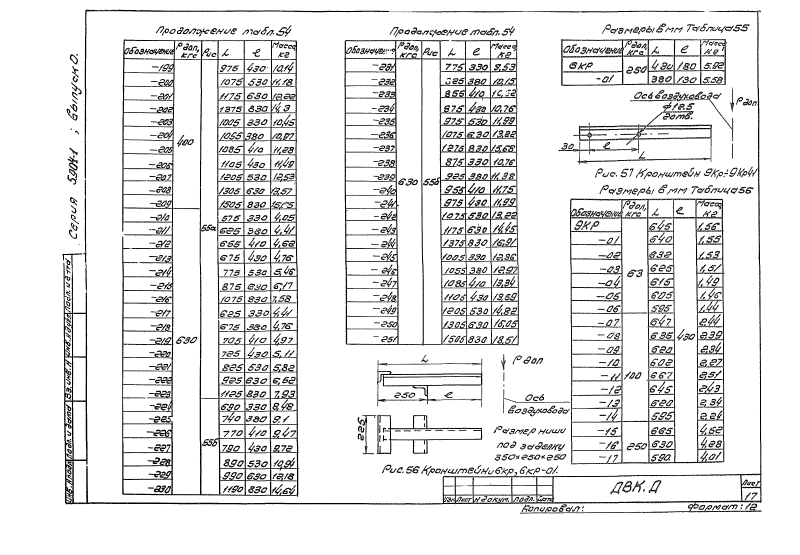 Серия 5.904-1 ; Выпуск 0.
Продолжение табл. 54
Обозначение Рдоп, кгс Рис L ℓ Масса кг
-199 400 55а 975 430 10,14
-200 1075 530 11,18
-201 1175 630 12,22
-202 1375 830 14,3
-203 1005 330 10,45
-204 1055 380 10,97
-205 1085 410 11,28
-206 1105 430 11,49
-207 1205 530 12,53
-208 1305 630 13,57
-209 1505 830
-210 630 575 330 4,05
-211 625 380 4,41
-212 655 410 4,62
-213 675 430 4,76
-214 775 530 5,46
-215 875 630 6,17
-216 1075 830 7,58
-217 625 330 4,41
-218 675 380 4,76
-219 705 410 4,97
-220 725 430 5,11
-221 825 530 5,82
-222 925 630 6,52
-223 1125 830 7,93
-224 55б 690 330 8,48
-225 740 380 9,1
-226 770 410 9,47
-227 790 430 9,72
-228 890 530 10,94
-229 990 630 12,18
-230 1190 830 14,64
Продолжение табл. 54
Обозначение Рдоп, кгс Рис L ℓ Масса кг
-231 630 55б 775 330 9,53
-232 825 380 10,15
-233 855 410
-234 875 430 10,76
-235 975 530 11,99
-236 1075 630 13,22
-237 1275 830 15,68
-238 875 330 10,76
-239 925 380 11,38
-240 955 410 11,75
-241 975 430 11,99
-242 1075 530 13,22
-243 1175 630 14,45
-244 1375 830 16,91
-245 1005 330 12,36
-246 1055 380 12,97
-247 1085 410 13,34
-248 1105 430 13,59
-249 1205 530 14,82
-250 1305 630 16,05
-251 1505 830 18,51
L
Рдоп
250 ℓ
Ось воздуховода
225
Размер ниши под заделку 350×250×250
Рис. 56 Кронштейн 8кр, 8кр-01.
Размеры в мм Таблица 55
Обозначение Рдоп, кгс L ℓ Масса кг
8КР 250 430 180 5.92
-01 380 130 5.58
Ось воздуховода
ф12,5
2отв.
Рдоп
30 ℓ
L
Рис. 57 Кронштейн 9Кр÷9Кр-17
Размеры в мм Таблица 56
Обозначение Рдоп, кгс L ℓ Масса кг
9КР 63 645 430 1,56
-01 640 1,55
-02 632 1,53
-03 625 1,51
-04 615 1,49
-05 605 1,46
-06 595 1,44
-07 100 647 2,44
-08 635 2,39
-09 620 2,34
-10 602 2,27
-11 667 2,51
-12 645 2,43
-13 620 2,34
-14 595 2,24
-15 250 665 4,52
-16 630 4,28
-17 590 4,01
Инв.№подл. Подп. и дата Вз.инв.№ Инв.№дубл. Подп. и дата
Изм Лист №докум. Подп. Дата
ДВК.Д
Лист
17
Копировал:
Формат: 12